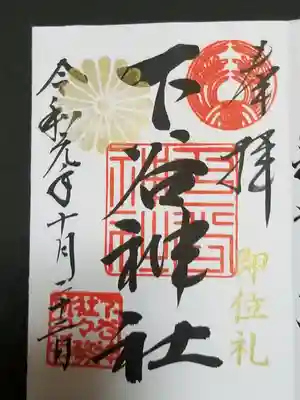 奉拝
下谷神社
令和元年十月二十二日
即位礼